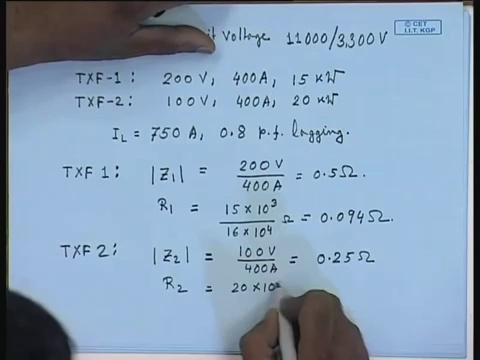 it Voltage 11000/3,300V
© CET
I.I.T. KGP
TXF-1 : 200 V, 400A, 15 kW
TXF-2 : 100 V, 400A, 20 kW
I_L = 750 A, 0.8 p.f lagging.
TXF 1 : |Z₁| = 200 V / 400A = 0.5Ω.
R₁ = 15 × 10³ / 16 × 10⁴ Ω = 0.094Ω.
TXF 2 : |Z₂| = 100V / 400A = 0.25Ω
R₂ = 20 × 10